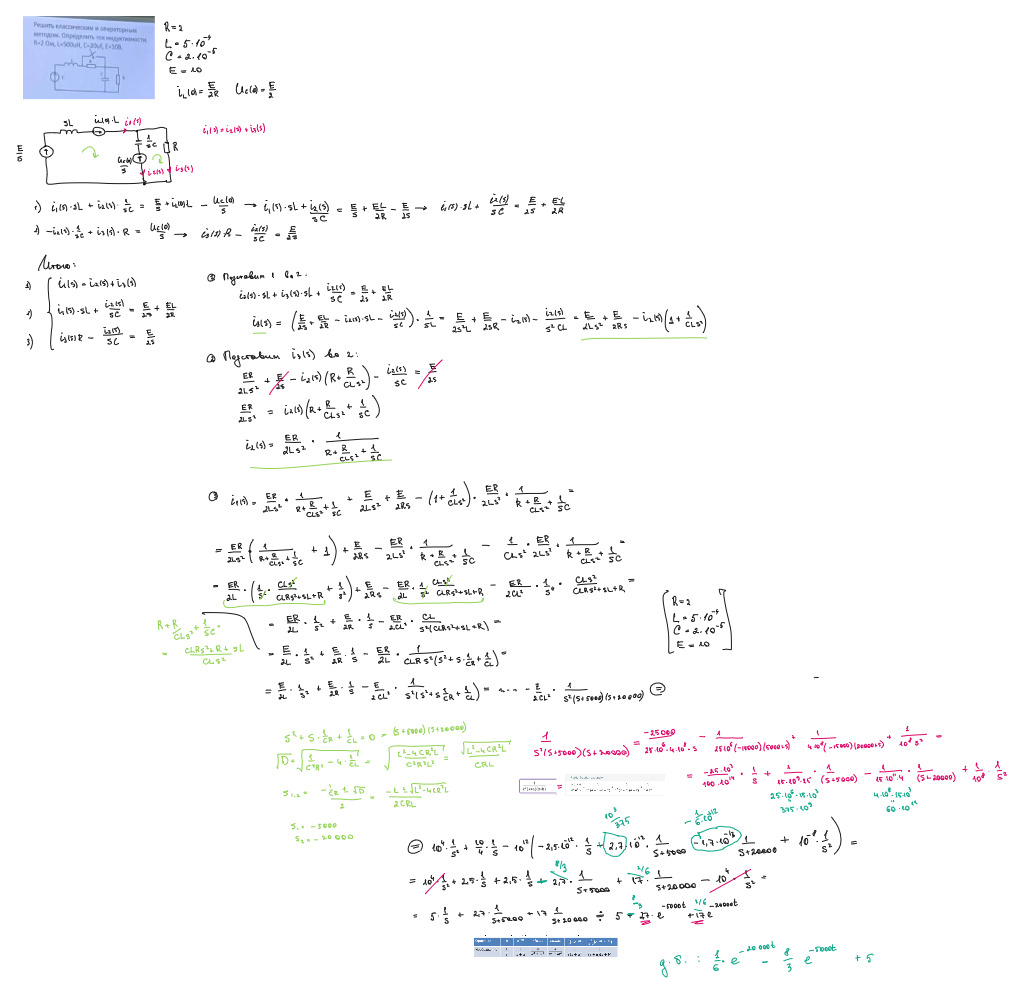 Решить классическим и операторным
методом. Определить ток индуктивности.
R=2 Ом, L=500uH, C=20uF, E=10В.
R = 2
L = 5·10⁻⁴
C = 2·10⁻⁵
E = 10
i_L(0) = E/2R   U_C(0) = E/2
sL   i_L(0)·L   i₁(s)
E/s   1/sC   R   U_C(0)/s   i₂(s)   i₃(s)
i₁(s) = i₂(s) + i₃(s)
1) i₁(s)·sL + i₂(s)·1/sC = E/s + i_L(0)L − U_C(0)/s → i₁(s)·sL + i₂(s)/sC = E/s + EL/2R − E/2s → i₁(s)·sL + i₂(s)/sC = E/2s + EL/2R
2) −i₂(s)·1/sC + i₃(s)·R = U_C(0)/s → i₃(s)·R − i₂(s)/sC = E/2s
Итого:
i₁(s) = i₂(s) + i₃(s)
i₁(s)·sL + i₂(s)/sC = E/2s + EL/2R
3) i₃(s)R − i₂(s)/sC = E/2s
Подставим 1 во 2:
i₂(s)·sL + i₃(s)·sL + i₂(s)/sC = E/2s + EL/2R
i₃(s) = (E/2s + EL/2R − i₂(s)·sL − i₂(s)/sC)·1/sL = E/2s²L + E/2sR − i₂(s) − i₂(s)/s²CL = E/2Ls² + E/2Rs − i₂(s)(1 + 1/CLs²)
Подставим i₃(s) во 2:
ER/2Ls² + E/2s − i₂(s)(R + R/CLs²) − i₂(s)/sC = E/2s
ER/2Ls² = i₂(s)(R + R/CLs² + 1/sC)
i₂(s) = ER/2Ls² · 1/(R + R/CLs² + 1/sC)
③ i₁(s) = ER/2Ls² · 1/(R + R/CLs² + 1/sC) + E/2Ls² + E/2Rs − (1 + 1/CLs²)·ER/2Ls² · 1/(R + R/CLs² + 1/sC) =
= ER/2Ls² (1/(R + R/CLs² + 1/sC) + 1) + E/2Rs − ER/2Ls² · 1/(R + R/CLs² + 1/sC) − 1/CLs² · ER/2Ls² · 1/(R + R/CLs² + 1/sC) =
= ER/2L · (1/s² · CLs²/(CLRs²+sL+R) + 1/s²) + E/2Rs − ER/2L · 1/s² · CLs²/(CLRs²+sL+R) − ER/2CL² · 1/s⁴ · CLs²/(CLRs²+sL+R) =
R + R/CLs² + 1/sC =
= (CLRs² + R + sL)/CLs²
= ER/2L · 1/s² + E/2R · 1/s − ER/2CL² · CL/(s²(CLRs²+sL+R)) =
= E/2L · 1/s² + E/2R · 1/s − ER/2L · 1/(CLRs²(s² + s·1/CR + 1/CL)) =
= E/2L · 1/s² + E/2R · 1/s − E/2CL² · 1/(s²(s² + s·1/CR + 1/CL)) = ..... − E/2CL² · 1/(s²(s+5000)(s+20000)) =
R = 2
L = 5·10⁻⁴
C = 2·10⁻⁵
E = 10
s² + s·1/CR + 1/CL = 0 = (s+5000)(s+20000)
√D = √(1/C²R² − 4·1/CL) = √((L²−4CR²L)/C²R²L²) = √(L²−4CR²L)/CRL
s₁,₂ = (−1/CR ± √D)/2 = (−L ± √(L²−4CR²L))/2CRL
s₁ = −5000
s₂ = −20000
1/(s²(s+5000)(s+20000)) = −25000/(25·10⁶·4·10⁸·s) − 1/(25·10⁶(−15000)(5000+s)) + 1/(4·10⁸(−15000)(20000+s)) + 1/(10⁸s²) =
= −25·10³/100·10¹⁴ · 1/s + 1/(15·10⁹·25) · 1/(s+5000) − 1/(15·10¹¹·4) · 1/(s+20000) + 1/10⁸ · 1/s²
25·10⁶·15·10³
375·10⁹
4·10⁸·15·10³
60·10¹¹
= 10⁴·1/s² + 10/4 · 1/s − 10¹²(−2,5·10⁻¹²·1/s + 2,7·10⁻¹²·1/(s+5000) − 1,7·10⁻¹³ 1/(s+20000) + 10⁻⁸·1/s²) =
= 10⁴·1/s² + 2,5·1/s + 2,5·1/s − 2,7·1/(s+5000) + 17·1/(s+20000) − 10⁴·1/s² =
= 5·1/s + 27·1/(s+5000) + 17·1/(s+20000) ÷ 5 − 27·e^−5000t + 17e^−20000t
g.8. : 1/6·e^−20000t − 8/3 e^−5000t + 5